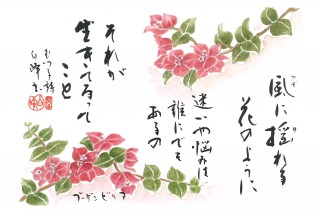 風に揺れる
花のように
迷いや悩みは
誰にでも
あるの
それが
生きてるって
こと
ブーゲンビリア